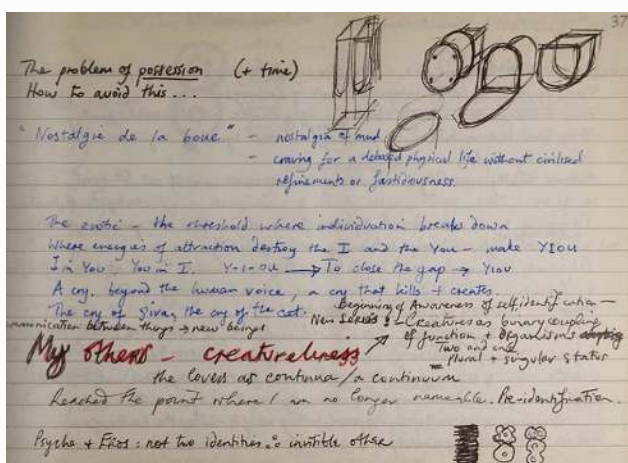 37
The problem of possession (+ time)
How to avoid this...
"Nostalgie de la boue" - nostalgia of mud
- craving for a debased physical life without civilised
refinements or fastidiousness.
The erotic - the threshold where individuation breaks down
Where energies of attraction destroy the I and the You - make YIOU
I in You, You in I. Y-I-OU → To close the gap → YIOU
A cry, beyond the human voice, a cry that kills + creates.
The cry of the cat.
Beginning of Awareness of self, identification -
communication between things → new beings
New Series: - Creatures as binary coupling
of function + organisms
My others - creatureliness
Two and one
= plural + singular status
the lovers as continua / a continuum
Reached the point where I am no longer nameable. Pre-identification.
Psyche + Eros: not two identities invisible other